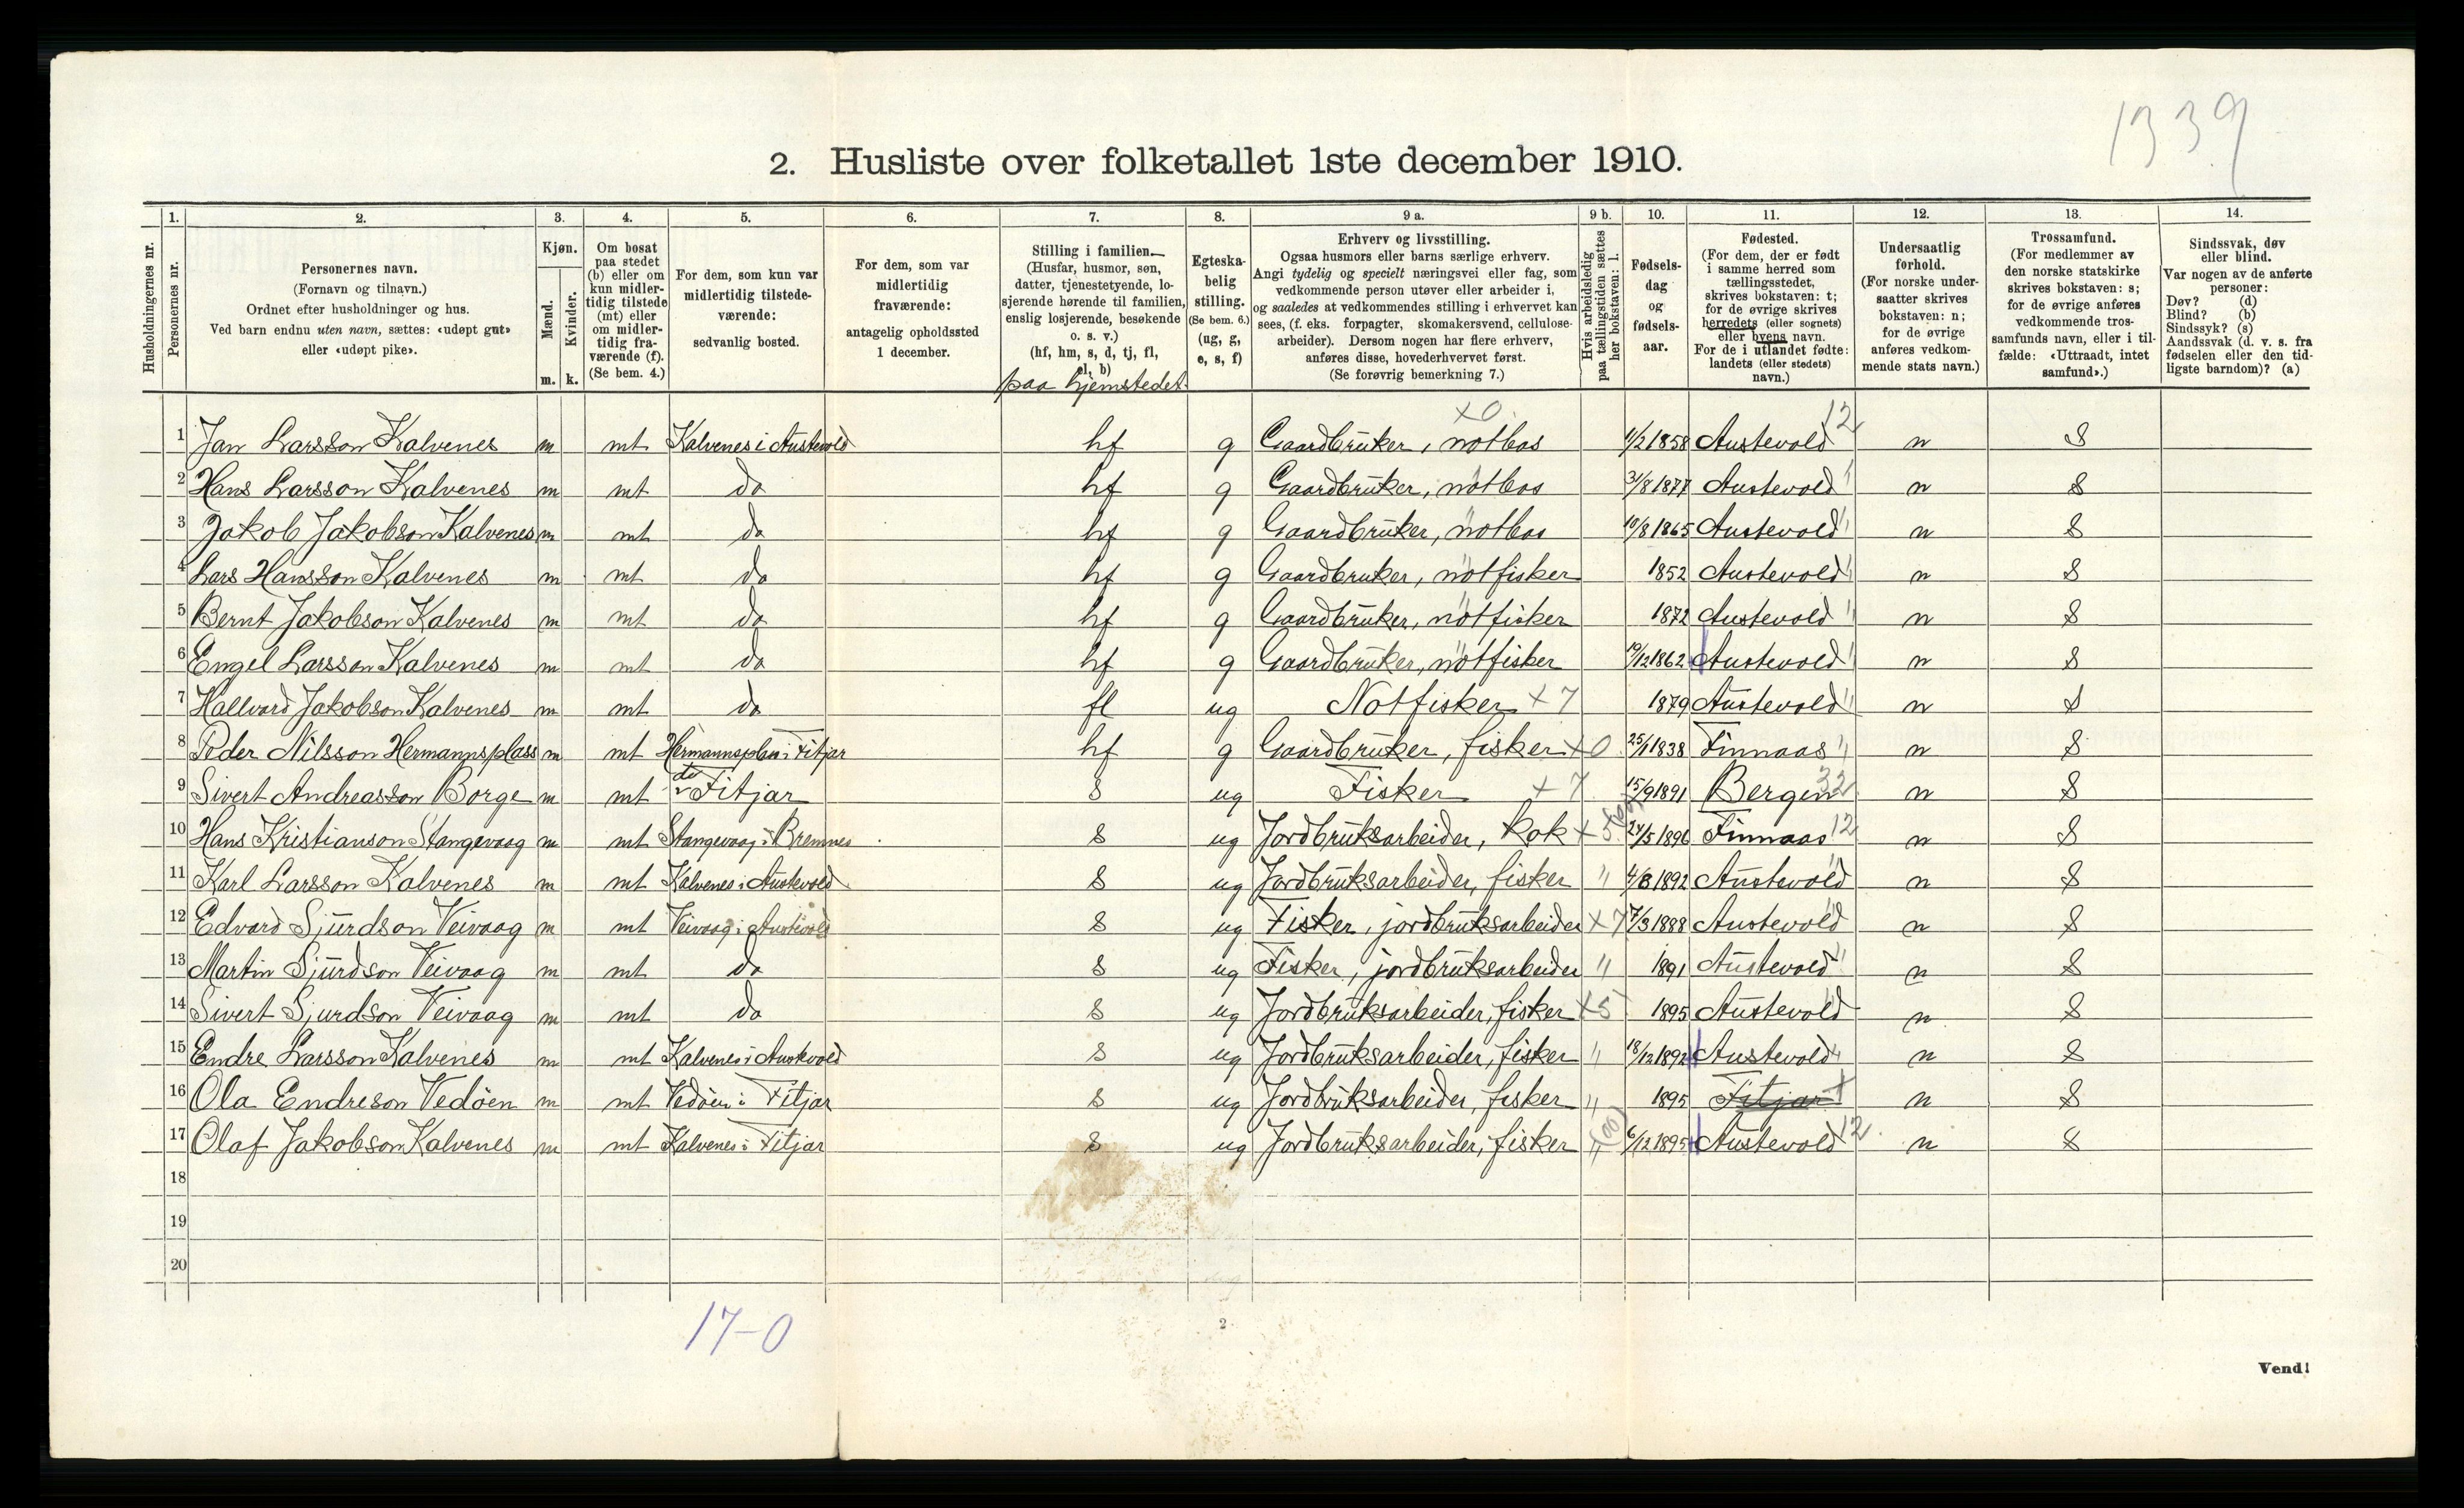 1339
2. Husliste over folketallet 1ste december 1910.
1. 2. 3. 4. 5. 6. 7. 8. 9 a. 9 b. 10. 11. 12. 13. 14.
Husholdningernes nr.
Personernes nr.
Personernes navn.
(Fornavn og tilnavn.)
Ordnet efter husholdninger og hus.
Ved barn endnu uten navn, sættes: «udøpt gut»
eller «udøpt pike».
Kjøn.
Mænd.
Kvinder.
m. k.
Om bosat
paa stedet
(b) eller om
kun midler-
tidig tilstede
(mt) eller
om midler-
tidig fra-
værende (f).
(Se bem. 4.)
For dem, som kun var
midlertidig tilstede-
værende:
sedvanlig bosted.
For dem, som var
midlertidig
fraværende:
antagelig opholdssted
1 december.
Stilling i familien.
(Husfar, husmor, søn,
datter, tjenestetyende, lo-
sjerende hørende til familien,
enslig losjerende, besøkende
o. s. v.)
(hf, hm, s, d, tj, fl,
el, b)
paa hjemstedet
Egteska-
belig
stilling.
(Se bem. 6.)
(ug, g,
e, s, f)
Erhverv og livsstilling.
Ogsaa husmors eller barns særlige erhverv.
Angi tydelig og specielt næringsvei eller fag, som
vedkommende person utøver eller arbeider i,
og saaledes at vedkommendes stilling i erhvervet kan
sees, (f. eks. forpagter, skomakersvend, cellulose-
arbeider). Dersom nogen har flere erhverv,
anføres disse, hovederhvervet først.
(Se forøvrig bemerkning 7.)
Hvis arbeidsledig
paa tællingstiden sættes
her bokstaven: l.
Fødsels-
dag
og
fødsels-
aar.
Fødested.
(For dem, der er født
i samme herred som
tællingsstedet,
skrives bokstaven: t;
for de øvrige skrives
herredets (eller sognets)
eller byens navn.
For de i utlandet fødte:
landets (eller stedets)
navn.)
Undersaatlig
forhold.
(For norske under-
saatter skrives
bokstaven: n;
for de øvrige
anføres vedkom-
mende stats navn.)
Trossamfund.
(For medlemmer av
den norske statskirke
skrives bokstaven: s;
for de øvrige anføres
vedkommende tros-
samfunds navn, eller i til-
fælde: «Uttraadt, intet
samfund».)
Sindssvak, døv
eller blind.
Var nogen av de anførte
personer:
Døv? (d)
Blind? (b)
Sindssyk? (s)
Aandssvak (d. v. s. fra
fødselen eller den tid-
ligste barndom)? (a)
x0 12
1 Jan Larsson Kalvenes m mt Kalvenes i Austevold hf g Gaardbruker, notbas 1/2 1858 Austevold n S
2 Hans Larsson Kalvenes m mt do hf g Gaardbruker, notbas 31/8 1877 Austevold " n S
3 Jakob Jakobson Kalvenes m mt do hf g Gaardbruker, notbas 10/8 1865 Austevold " n S
4 Lars Hansson Kalvenes m mt do hf g Gaardbruker, notfisker 1852 Austevold " n S
5 Bernt Jakobson Kalvenes m mt do hf g Gaardbruker, notfisker 1872 Austevold " n S
6 Engel Larsson Kalvenes m mt do hf g Gaardbruker, notfisker 19/12 1862 Austevold " n S
7 Hallvard Jakobson Kalvenes m mt do fl ug Notfisker x7 1879 Austevold " n S
8 Peder Nilsson Hermannsplass m mt Hermannsplass i Fitjar hf g Gaardbruker, fisker x0 25/1 1838 Finnaas " n S
9 Sivert Andreasson Borge m mt do Fitjar S ug Fisker x7 15/9 1891 Bergen 32 n S
10 Hans Kristianson Stangevaag m mt Stangevaag i Bremnes S ug Jordbruksarbeider, Kok x5 24/5 1896 Finnaas 12 n S
11 Karl Larsson Kalvenes m mt Kalvenes i Austevold S ug Jordbruksarbeider, fisker " 4/8 1892 Austevold n S
12 Edvard Sjurdson Veivaag m mt Veivaag i Austevold S ug Fisker, jordbruksarbeider x7 7/3 1888 Austevold n S
13 Martin Sjurdson Veivaag m mt do S ug Fisker, jordbruksarbeider " 1891 Austevold " n S
14 Sivert Sjurdson Veivaag m mt do S ug Jordbruksarbeider, fisker x5 1895 Austevold n S
15 Endre Larsson Kalvenes m mt Kalvenes i Austevold S ug Jordbruksarbeider, fisker " 18/12 1892 Austevold " n S
16 Ola Endreson Vedøen m mt Vedøen i Fitjar S ug Jordbruksarbeider, fisker " 1895 Fitjar t n S
17 Olaf Jakobson Kalvenes m mt Kalvenes i Fitjar S ug Jordbruksarbeider, fisker " 6/12 1895 Austevold 12 n S
18
19
20
17-0
2
Vend!